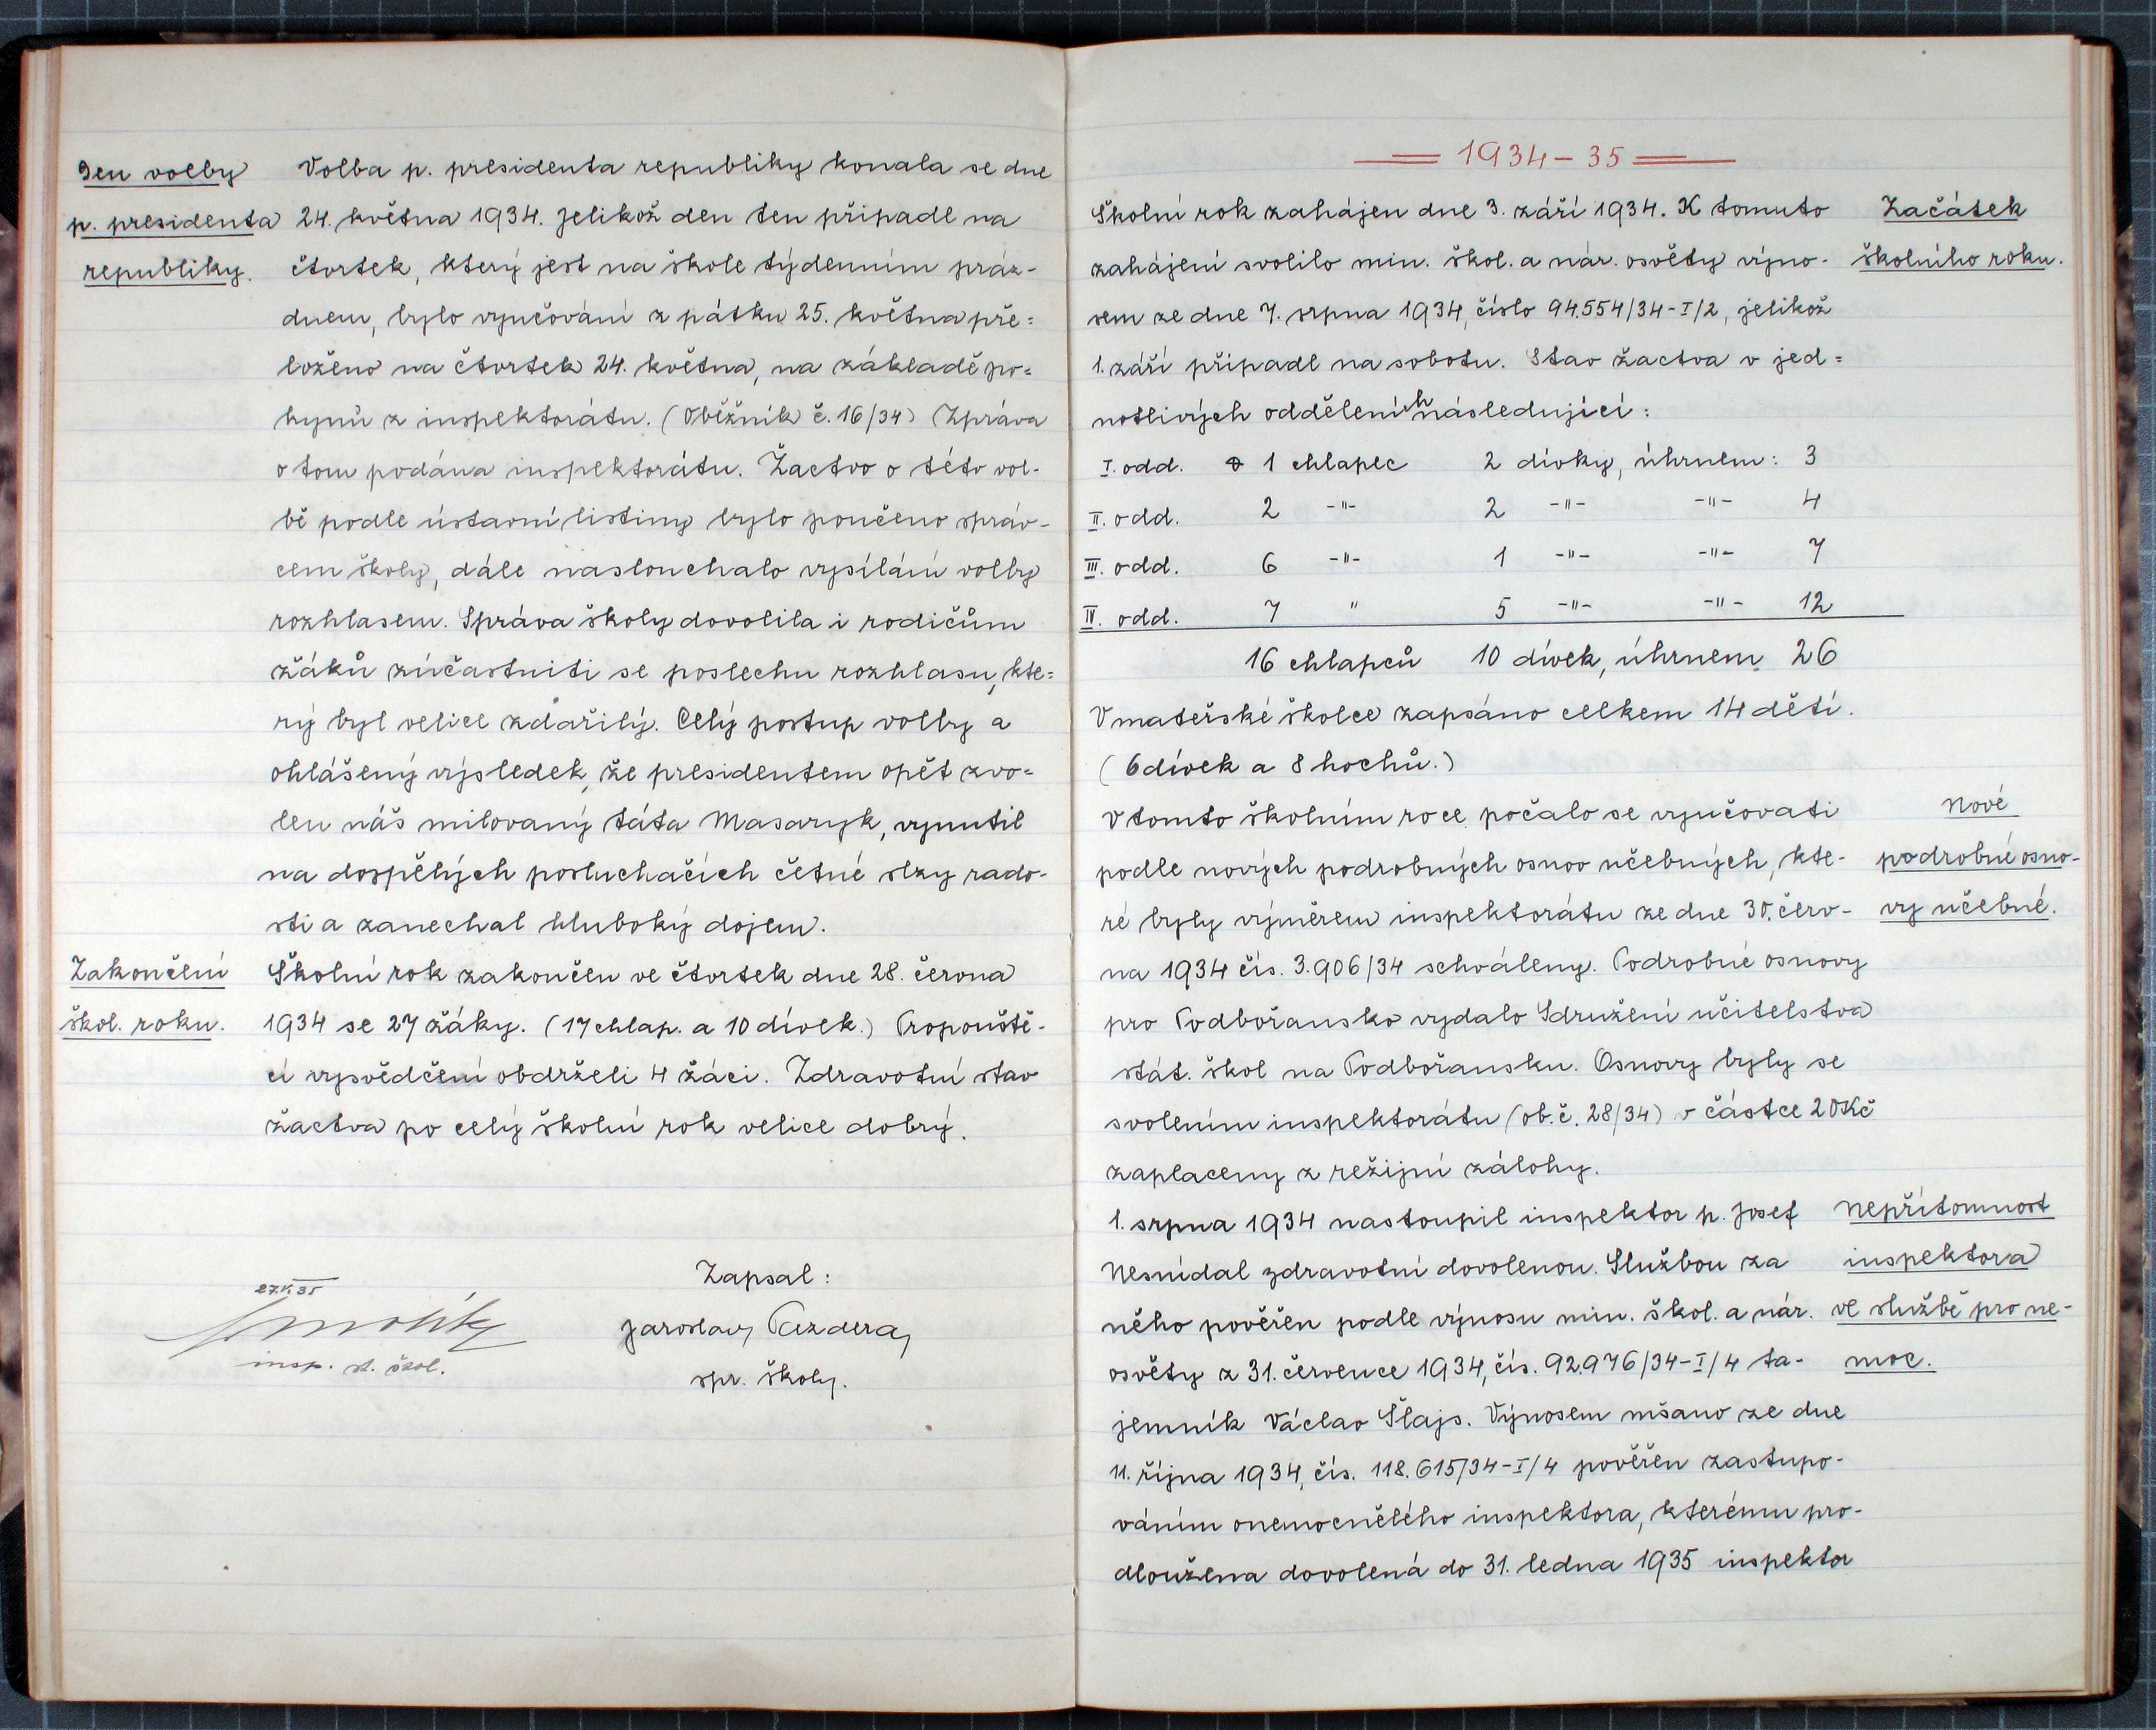 Den volby
p. presidenta
republiky.
Volba p. presidenta republiky konala se dne
24. května 1934. Jelikož den ten připadl na
čtvrtek, který jest na škole týdenním práz-
dnem, bylo vyučování z pátku 25. května pře=
loženo na čtvrtek 24. května, na základě po=
kynů z inspektorátu. (Oběžník č. 16/34) Zpráva
o tom podána inspektorátu. Žactvo o této vol-
bě podle ústavní listiny bylo poučeno správ-
cem školy, dále naslouchalo vysílání volby
rozhlasem. Správa školy dovolila i rodičům
žáků zúčastniti se poslechu rozhlasu, kte=
rý byl velice zdařilý. Celý postup volby a
ohlášený výsledek, že presidentem opět zvo=
len náš milovaný táta Masaryk, vynutil
na dospělých posluchačích četné slzy rado-
sti a zanechal hluboký dojem.
Zakončení
škol. roku.
Školní rok zakončen ve čtvrtek dne 28. června
1934 se 27 žáky. (17 chlap. a 10 dívek.) Propouště-
cí vysvědčení obdrželi 4 žáci. Zdravotní stav
žactva po celý školní rok velice dobrý.
Zapsal:
Jaroslav Pazdera,
spr. školy.
27.V.35
Smolík
insp. st. škol.
1934-35
Školní rok zahájen dne 3. září 1934. K tomuto
zahájení svolilo min. škol. a nár. osvěty výno-
sem ze dne 7. srpna 1934, číslo 94.554/34-I/2, jelikož
1. září připadl na sobotu. Stav žactva v jed=
notlivých odděleních následující:
Začátek
školního roku.
I. odd. 1 chlapec 2 dívky, úhrnem: 3
II. odd. 2 -"- 2 -"- -"- 4
III. odd. 6 -"- 1 -"- -"- 7
IV. odd. 7 " 5 -"- -"- 12
16 chlapců 10 dívek, úhrnem 26
V mateřské školce zapsáno celkem 14 dětí.
(6 dívek a 8 hochů.)
V tomto školním roce počalo se vyučovati
podle nových podrobných osnov učebných, kte-
ré byly výměrem inspektorátu ze dne 30. červ-
na 1934 čís. 3.906/34 schváleny. Podrobné osnovy
pro Podbořansko vydalo Sdružení učitelstva
stát. škol na Podbořansku. Osnovy byly se
svolením inspektorátu (ob. č. 28/34) v částce 20Kč
zaplaceny z režijní zálohy.
Nové
podrobné osno-
vy učebné.
1. srpna 1934 nastoupil inspektor p. Josef
Nesnídal zdravotní dovolenou. Službou za
něho pověřen podle výnosu min. škol. a nár.
osvěty z 31. července 1934, čís. 92.976/34-I/4 ta-
jemník Václav Šlajs. Výnosem mšano ze dne
11. října 1934, čís. 118.615/34-I/4 pověřen zastupo-
váním onemocnělého inspektora, kterému pro-
dloužena dovolená do 31. ledna 1935 inspektor
Nepřítomnost
inspektora
ve službě pro ne-
moc.